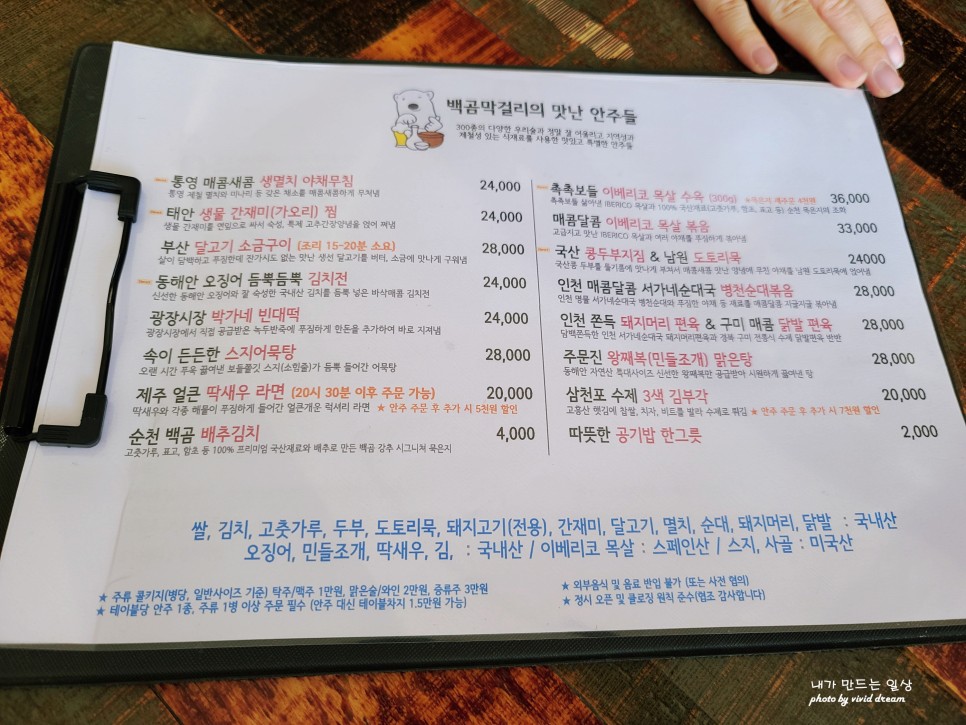 백곰막걸리의 맛난 안주들
300종의 다양한 우리술과 정말 잘 어울리고, 지역성과
제철성 있는 식재료를 사용한 맛있고 특별한 안주들
통영 매콤새콤 생멸치 야채무침 24,000
통영 제철 멸치와 미나리 등 갖은 채소를 매콤새콤하게 무쳐냄
태안 생물 간재미(가오리) 찜 24,000
생물 간재미를 면밀으로 싸서 숙성, 특제 고추간장양념을 얹어 쪄냄
부산 달고기 소금구이 (조리 15~20분 소요) 28,000
살이 담백하고 푸짐한데 잔가시도 없는 맛난 생선 달고기를 버터, 소금에 맛나게 구워냄
동해안 오징어 듬뿍듬뿍 김치전 24,000
신선한 동해안 오징어와 잘 숙성한 국내산 김치를 듬뿍 넣은 바삭매콤 김치전
광장시장 박가네 빈대떡 24,000
광장시장에서 직접 공급받은 녹두반죽에 푸짐하게 한돈을 추가하여 바로 지져냄
속이 든든한 스지어묵탕 28,000
오랜 시간 푸욱 끓여낸 보들쫄깃 스지(소힘줄)가 듬뿍 들어간 어묵탕
제주 얼큰 딱새우 라면 (20시 30분 이후 주문 가능) 20,000
딱새우와 각종 해물이 푸짐하게 들어간 얼큰개운 럭셔리 라면 ★ 안주 주문 후 추가 시 5천원 할인
순천 백곰 배추김치 4,000
고춧가루, 표고, 함초 등 100% 프리미엄 국산재료와 배추로 만든 백곰 강추 시그니처 묵은지
촉촉보들 이베리코 목살 수육 (300g) ★묵은지 제주문 4천원 36,000
촉촉보들 삶아낸 IBERICO 목살과 100% 국산재료(고춧가루, 함초, 표고 등) 순천 묵은지의 조화
매콤달콤 이베리코 목살 볶음 33,000
고급지고 맛난 IBERICO 목살과 여러 야채를 푸짐하게 볶아냄
국산 콩두부지짐 & 남원 도토리묵 24000
국산콩 두부를 들기름에 맛나게 부쳐서 매콤새콤 맛난 양념에 무친 야채를 남원 도토리묵에 얹어냄
인천 매콤달콤 서가네순대국 병천순대볶음 28,000
인천 명물 서가네순대국 병천순대와 푸짐한 야채 등 재료를 매콤달콤 지글지글 볶아냄
인천 쫀득 돼지머리 편육 & 구미 매콤 닭발 편육 28,000
담백쫀득한 인천 서가네순대국 돼지머리편육과 경북 구미 전통식 수제 닭발편육 반반
주문진 왕째복(민들조개) 맑은탕 28,000
동해안 자연산 특대사이즈 신선한 왕째복만 공급받아 시원하게 끓여낸 탕
삼천포 수제 3색 김부각 20,000
고흥산 햇김에 찹쌀, 치자, 비트를 발라 수제로 튀김 ★ 안주 주문 후 추가 시 7천원 할인
따뜻한 공기밥 한그릇 2,000
쌀, 김치, 고춧가루, 두부, 도토리묵, 돼지고기(전용), 간재미, 달고기, 멸치, 순대, 돼지머리, 닭발 : 국내산
오징어, 민들조개, 딱새우, 김, : 국내산 / 이베리코 목살 : 스페인산 / 스지, 사골 : 미국산
★ 주류 콜키지(병당, 일반사이즈 기준) 탁주/맥주 1만원, 맑은술/와인 2만원, 증류주 3만원
★ 테이블당 안주 1종, 주류 1병 이상 주문 필수 (안주 대신 테이블차지 1.5만원 가능)
★ 외부음식 및 음료 반입 불가 (또는 사전 협의)
★ 정시 오픈 및 클로징 원칙 준수(협조 감사합니다)
내가 만드는 일상
photo by vivid dream